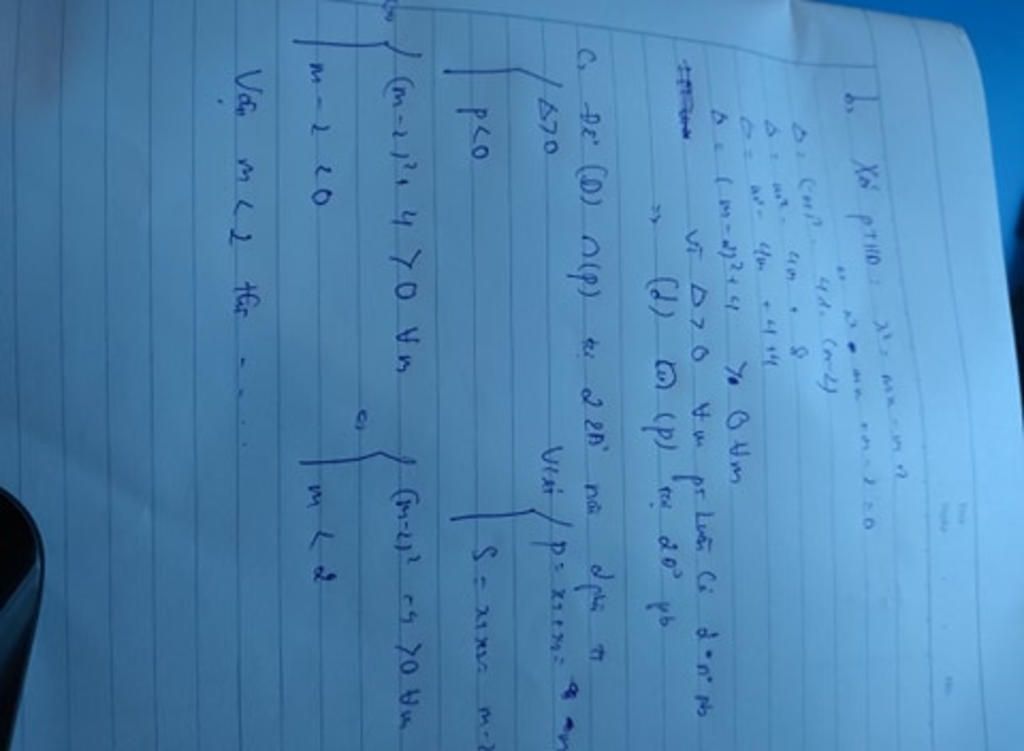 b, Xét pTHĐ: x² = mx - m + 2
<=> x² - mx + m - 2 = 0
Δ = (-m)² - 4.1.(m-2)
Δ = m² - 4m + 8
Δ = m² - 4m + 4 + 4
Δ = (m-2)² + 4 > 0 ∀m
Vì Δ > 0 ∀m pt luôn có 2 no pb
=> (d) (p) tại 2 pb
c, Để (D) ∩ (p) tại 2 nằm 2 phía
Δ > 0
p < 0
Viét p = x₁ + x₂ = m
S = x₁x₂ = m - 2
(m-2)² + 4 > 0 ∀m
m - 2 < 0
<=> (m-2)² + 4 > 0 ∀m
m < 2
Vậy m < 2 thì ....